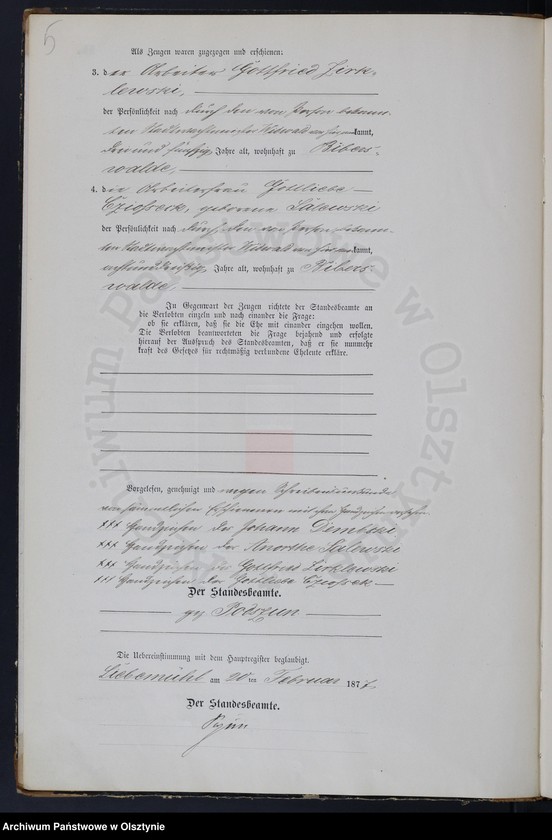 5
Als Zeugen waren zugezogen und erschienen:
3. der Arbeiter Gottfried Zirk-
lewski,
der Persönlichkeit nach durch den von Person bekann-
ten kannt,
drei und fünfzig Jahre alt, wohnhaft zu Bibers-
walde,
4. die Arbeiterfrau Gottliebe
Czioßeck, geborene Salewski
der Persönlichkeit nach durch den von Person bekann-
ten kannt,
Jahre alt, wohnhaft zu Bibers-
walde,
In Gegenwart der Zeugen richtete der Standesbeamte an
die Verlobten einzeln und nach einander die Frage:
ob sie erklären, daß sie die Ehe mit einander eingehen wollen.
Die Verlobten beantworteten die Frage bejahend und erfolgte
hierauf der Ausspruch des Standesbeamten, daß er sie nunmehr
kraft des Gesetzes für rechtmäßig verbundene Eheleute erkläre.
Vorgelesen, genehmigt und wegen Schreibensunkunde
von sämmtlichen Erschienenen mit ihren Handzeichen versehen
+++ Handzeichen des Johann Dembski
+++ Handzeichen der Anortha Salewski
+++ Handzeichen des Gottfried Zirklewski
+++ Handzeichen der Gottliebe Czioßeck
Der Standesbeamte.
gez. Podszun
Die Uebereinstimmung mit dem Hauptregister beglaubigt.
Liebemühl am 20 ten Februar 1877
Der Standesbeamte.
Archiwum Państwowe w Olsztynie
Archiwum Państwowe w Olsztynie